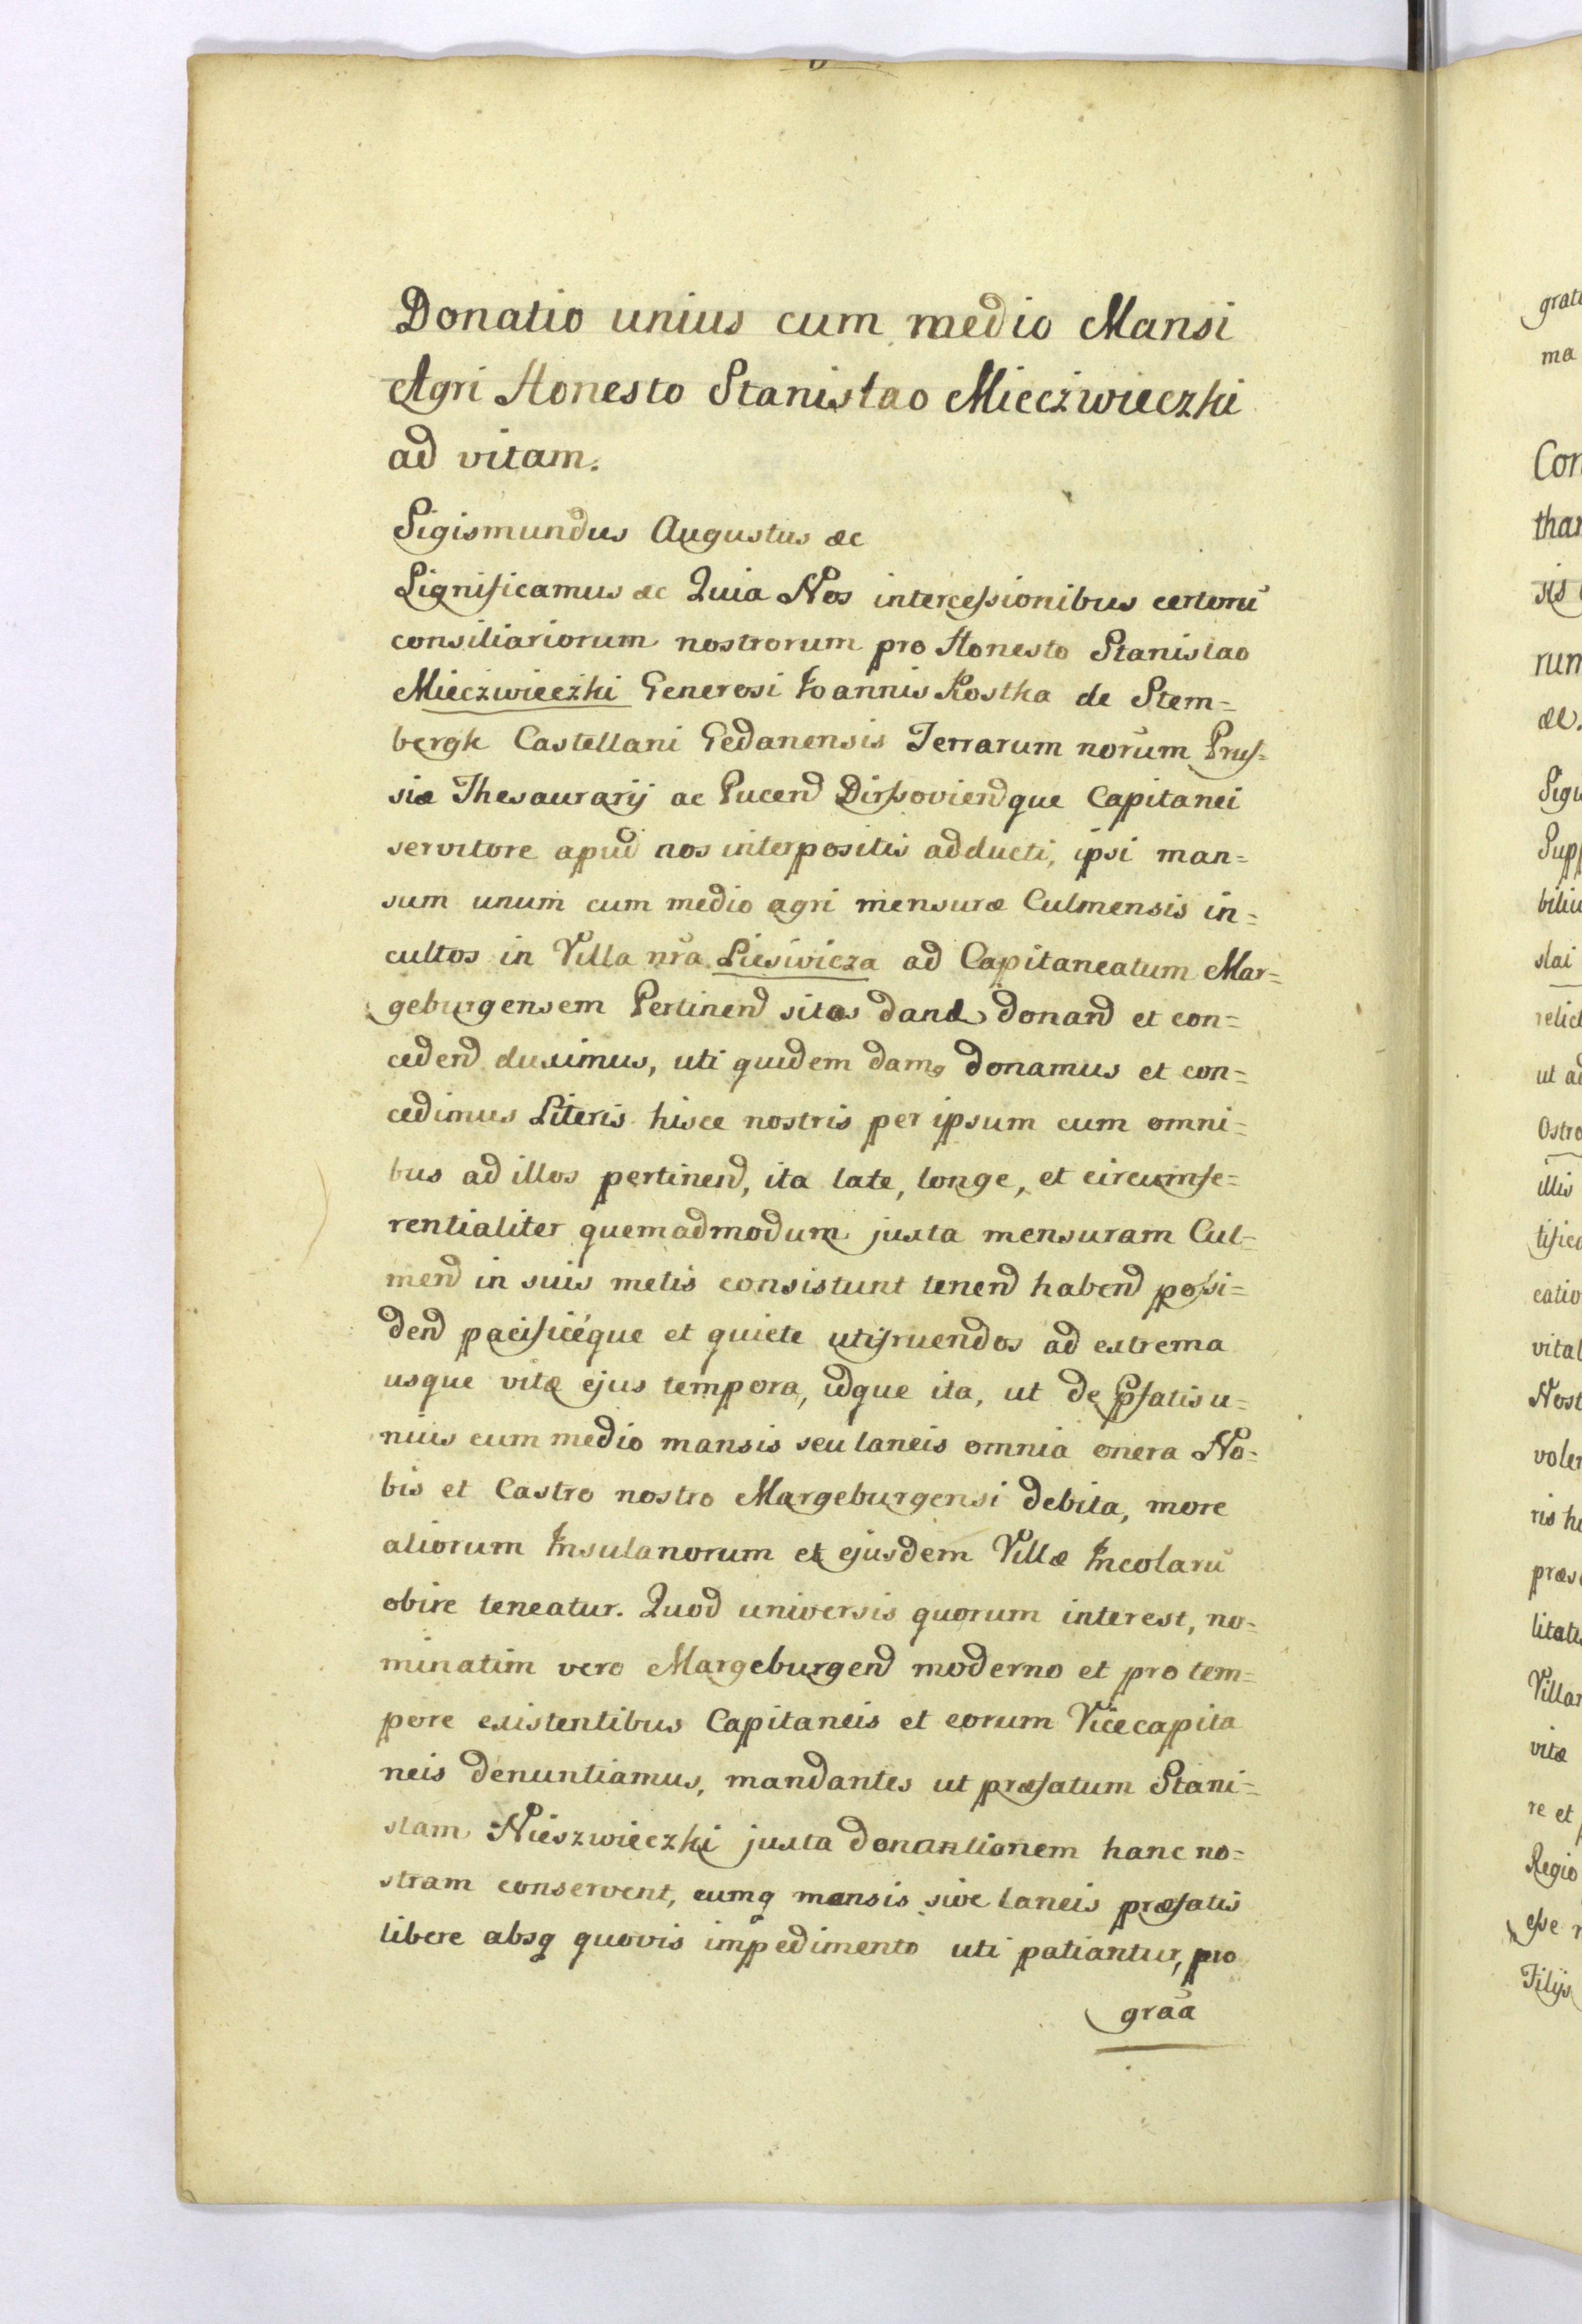 Donatio unius cum medio Mansi
Agri Honesto Stanislao Mieczwieczki
ad vitam.
Sigismundus Augustus &c
Significamus &c Quia Nos intercessionibus certorū
consiliariorum nostrorum pro Honesto Stanislao
Mieczwieczki Generosi Ioannis Kostka de Stem=
bergk Castellani Gedanensis Terrarum norum Prus=
siæ Thesaurarij ac Pucend Dirsoviendque Capitanei
servitore apud nos interpositis adducti, ipsi man=
sum unum cum medio agri mensuræ Culmensis in=
cultos in Villa nra Liesivicza ad Capitaneatum Mar=
geburgensem Pertinend sitos dand donand et con=
cedend duximus, uti quidem dam9 donamus et con=
cedimus Literis hisce nostris per ipsum cum omni=
bus ad illos pertinend, ita late, longe, et circumfe=
rentialiter quemadmodum juxta mensuram Cul=
mend in suis metis consistunt tenend habend possi=
dend pacificéque et quiete utifruendos ad extrema
usque vitæ ejus tempora, idque ita, ut de pfatis u=
nius cum medio mansis seu laneis omnia onera No=
bis et Castro nostro Margeburgensi debita, more
aliorum Insulanorum et ejusdem Villæ Incolarū
obire teneatur. Quod universis quorum interest, no=
minatim vero Margeburgend moderno et pro tem=
pore existentibus Capitaneis et eorum Vicecapita
neis denuntiamus, mandantes ut præfatum Stani=
slam Nieszwieczki juxta donantionem hanc no=
stram conservent, eumq mansis sive laneis præfatis
libere absq quovis impedimento uti patiantur, pro
graā
grati
ma
Con
than
ris
rum
æ.
Sigu
Supp
biliu
slai
relict
ut ad
Ostro
illis
tifica
catio
vital
Nost
voler
ris h
præs
litati
Villa
vitæ
re et
Regio
esse
Filijs